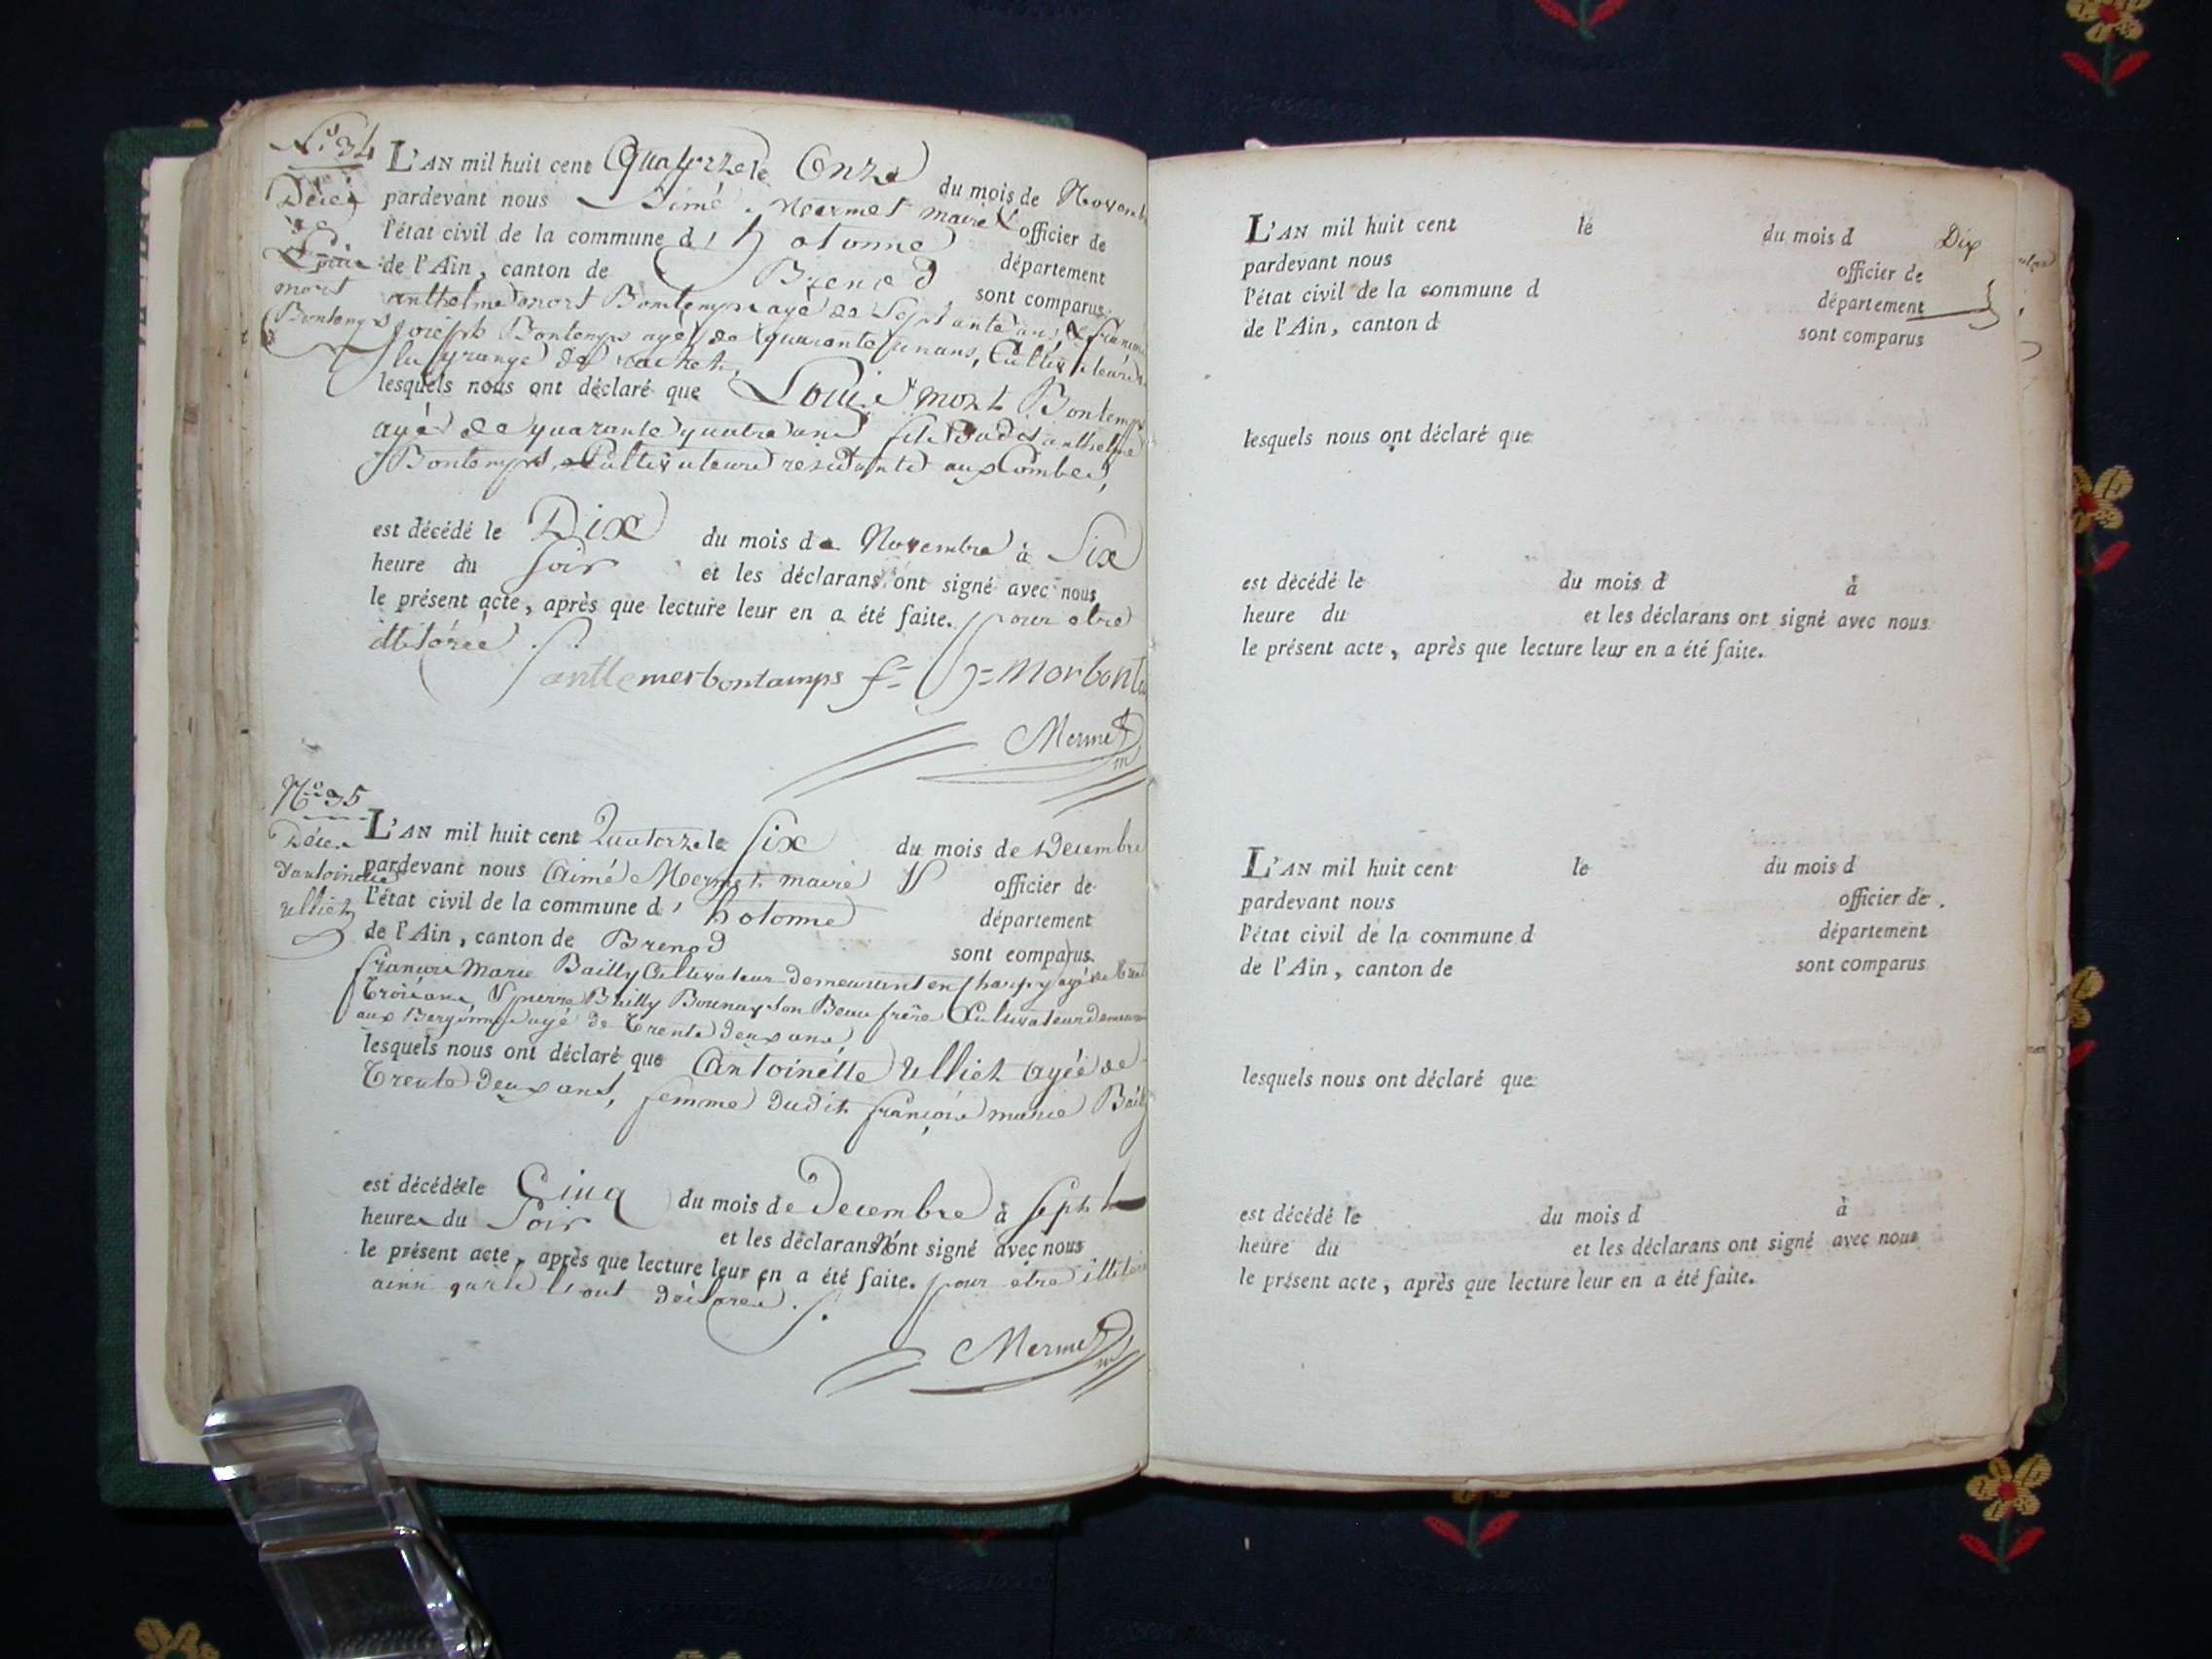 N.º 34
Décès
de
Louis
mort
Bontemps
L'AN mil huit cent Quatorze le Onze du mois de Novemb
pardevant nous Aimé Mermet maire & officier de
l'état civil de la commune d' hotonne département
de l'Ain, canton de Brenod sont comparus
anthelme mort Bontemps agé de Septante ans, & francois
joseph Bontemps agé de quarante un ans, Cultivateurs
la grange de
lesquels nous ont déclaré que Louis mort Bontemps
agé de quarante quatre ans fils dudit anthelme
Bontemps, Cultivateure residante aux Combes,
est décédé le Dix du mois de Novembre à Six
heure du Soir et les déclarans ont signé avec nous
le présent acte, après que lecture leur en a été faite. pour etre
antlemerbontamps f= mor bont
Mermet
N.º 35
Déces
d'antoinette
ulliet
L'AN mil huit cent Quatorze le Six du mois de Decembre
pardevant nous Aimé Mermet maire & officier de
l'état civil de la commune d' hotonne département
de l'Ain, canton de Brenod sont comparus
francois Marie Bailly Cultivateur demeurant en Charpy agé de trente
trois ans, & pierre Bailly Bounay son Beau frère Cultivateur demeurant
aux Bergonnes agé de trente deux ans,
lesquels nous ont déclaré que Antoinétte ulliet agée de
trente deux ans, femme dudit francois marie Bailly
est décédée le Cinq du mois de Decembre à Sept
heures du Soir et les déclarans n'ont signé avec nous
le présent acte, après que lecture leur en a été faite. pour etre illiteré
ainsi qu'ils l'ont déclaré.
Mermet
Dix
L'AN mil huit cent le du mois d
pardevant nous officier de
l'état civil de la commune d département
de l'Ain, canton d sont comparus
lesquels nous ont déclaré que
est décédé le du mois d à
heure du et les déclarans ont signé avec nous
le présent acte, après que lecture leur en a été faite.
L'AN mil huit cent le du mois d
pardevant nous officier de
l'état civil de la commune d département
de l'Ain, canton de sont comparus
lesquels nous ont déclaré que
est décédé le du mois d à
heure du et les déclarans ont signé avec nous
le présent acte, après que lecture leur en a été faite.